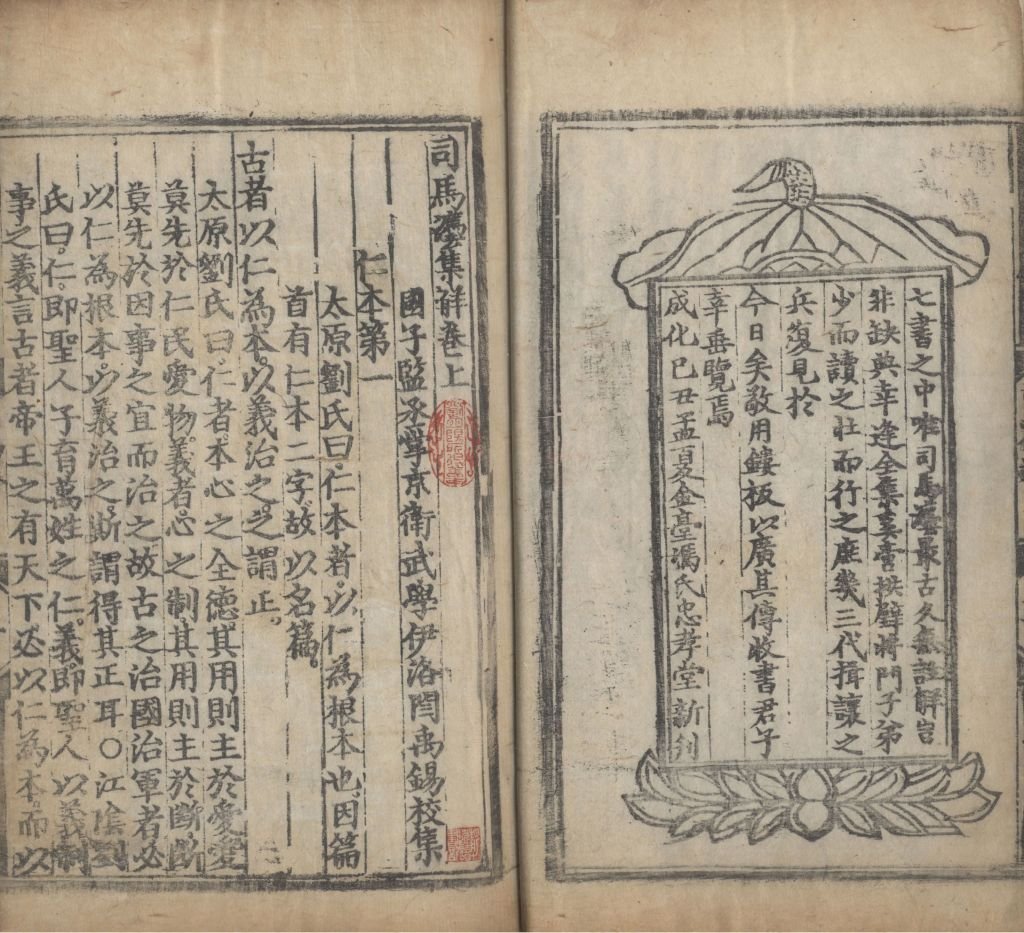 七書之中唯司馬灋最古久無註解豈
非缺典幸逢全集奚啻拱璧將門子弟
少而讀之壯而行之庶幾三代揖讓之
兵復見於
今日矣敬用鏤板以廣其傳收書君子
幸垂覽焉
成化己丑孟夏金臺馮氏忠孝堂新刋
司馬灋集觧卷上
國子監丞掌京衛武學伊洛閆禹錫校集
仁本第一
太原劉氏曰。仁本者。以仁為根本也。因篇
首有仁本二字。故以名篇。
古者以仁為本。以義治之。之謂正。
太原劉氏曰。仁者。本心之全德。其用則主於愛。愛
莫先於仁民愛物。義者。心之制。其用則主於斷。斷
莫先於因事之宜而治之。故古之治國治軍者。必
以仁為根本。以義治之。斯謂得其正耳○江陰劉
氏曰。仁。即聖人子育萬姓之仁。義。即聖人以義制
事之義。言古者帝王之有天下。必以仁為本。而以